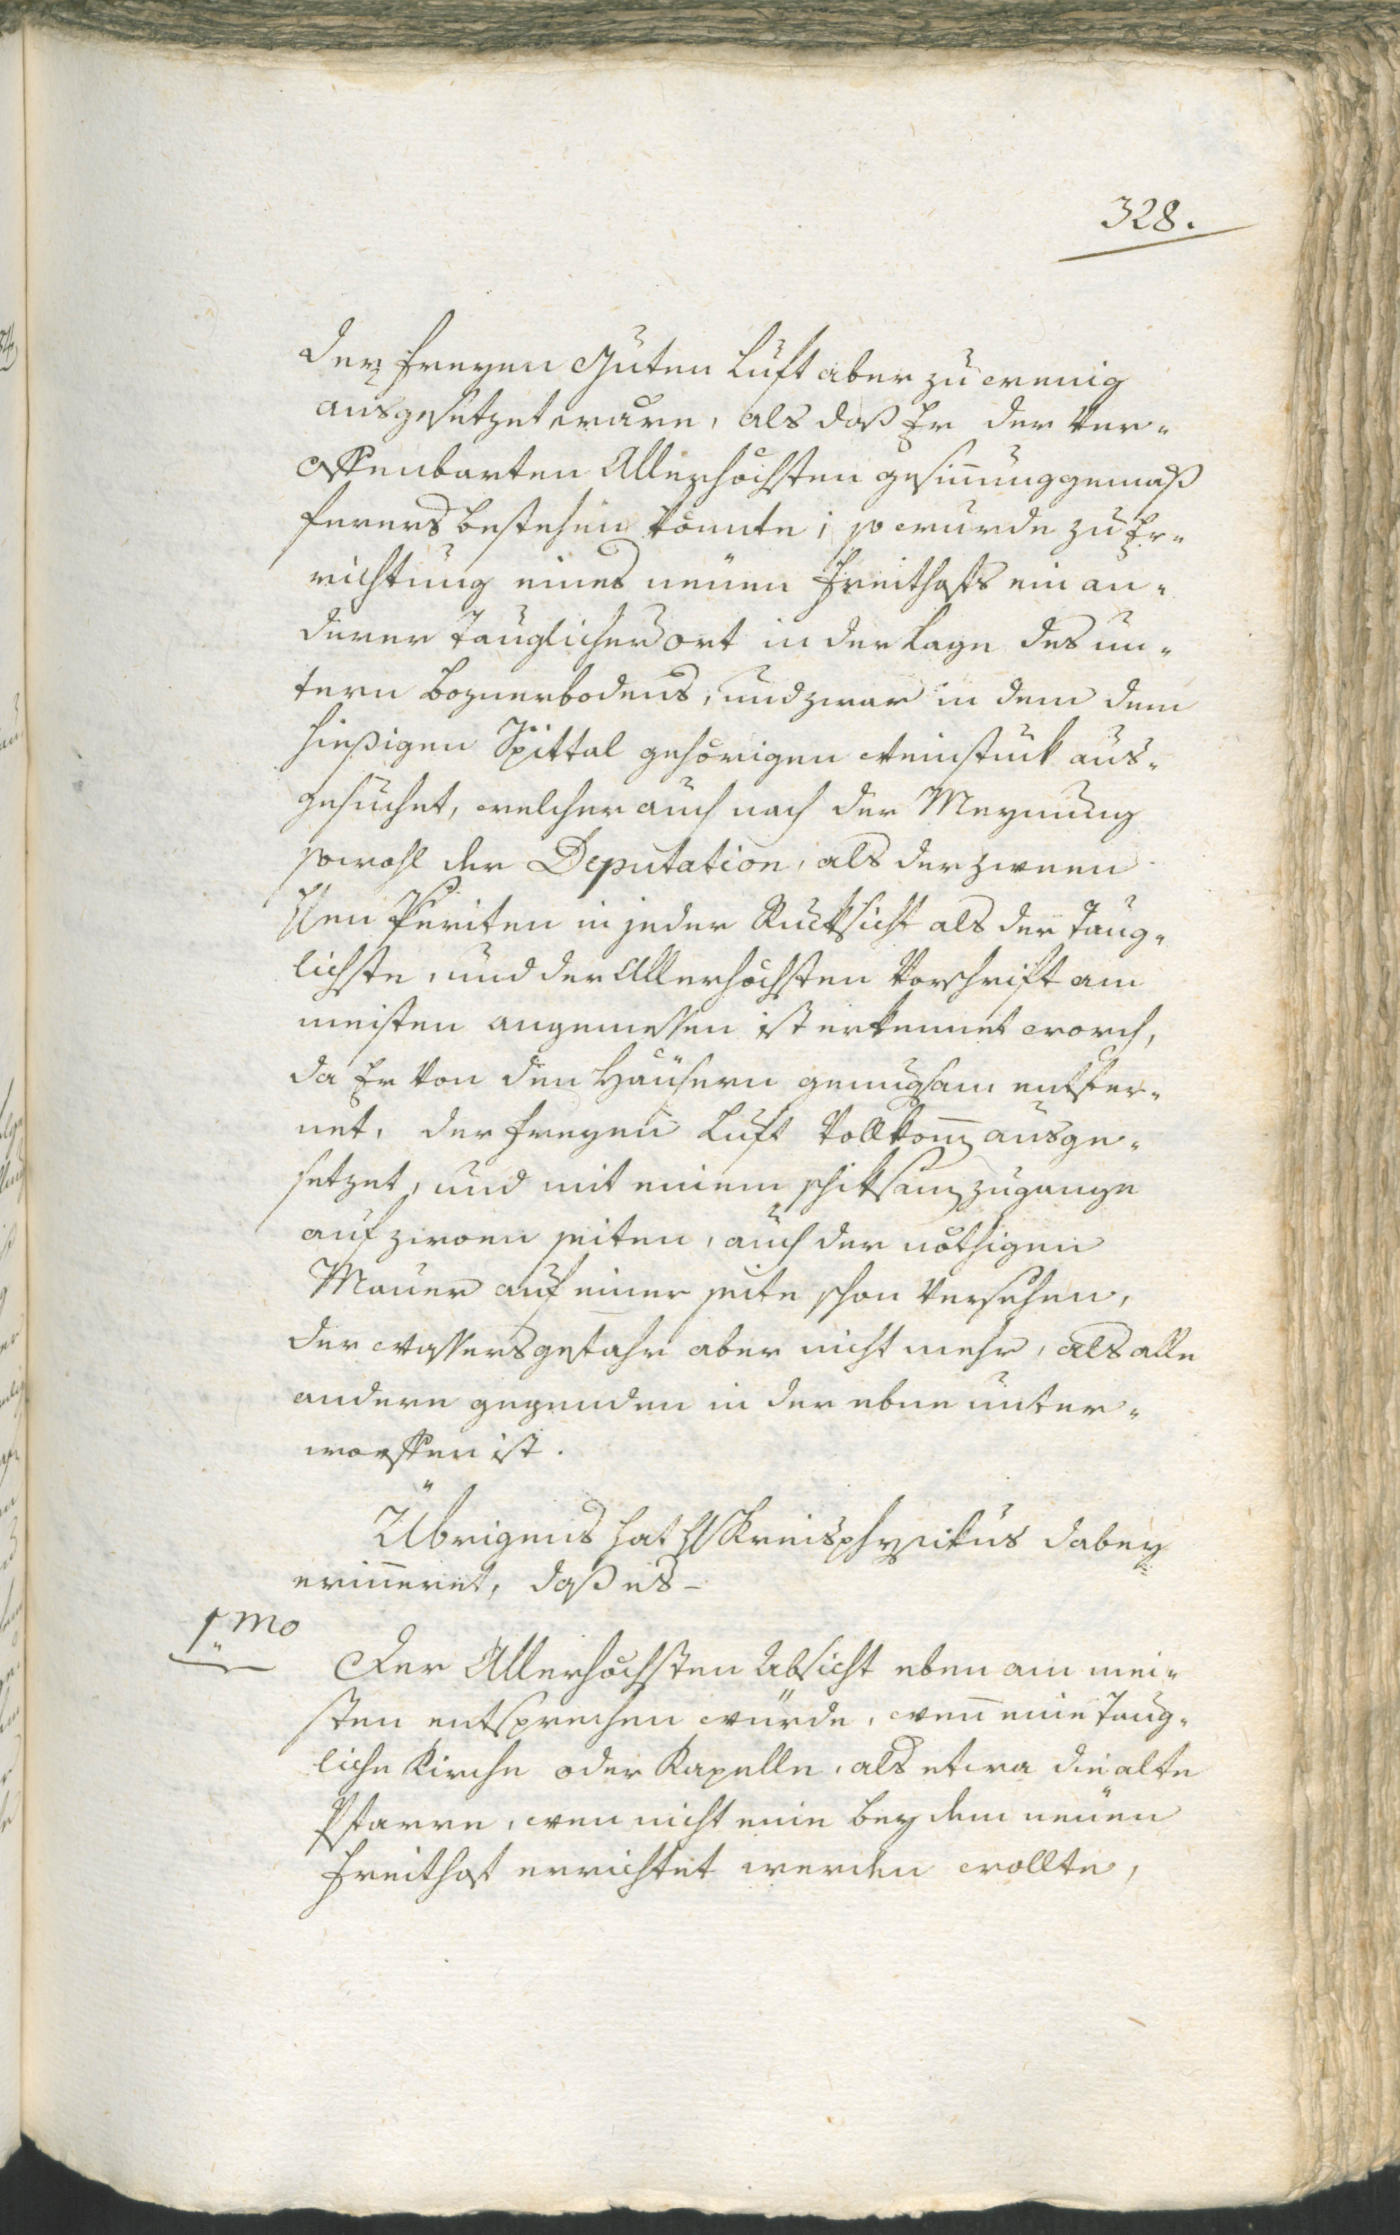 328.
der freyen guten Luft aber zu wenig
ausgesetzet wäre, als daß Er der ver-
offenbarten Allerhöchsten gesin̅ung gemäß
ferers bestehen könnte; so wurde zu Er-
richtung eines neüen Freithofs ein an-
derer tauglicher ort in der Lage des un-
tern boznerbodens, und zwar in dem dem
hießigen Spittal gehörigen weinstuck aus-
gesuchet, welcher auch nach der Meynung
sowohl der Deputation, als der zween
Hen Periten in jeder Rucksicht als der taug-
lichste, und der Allerhöchsten Vorschrift am
meisten angemessen ist erkennet word,
da Er von den Häusern genugsam entfer-
net, der freyen Luft vollkom̅ ausge-
setzet, und mit einem schiksam zugange
auf zwoen seiten, auch der nöthigen
Mauer auf einer seite schon versehen,
der wassersgefahr aber nicht mehr, als alle
andere gegenden in der ebne unter-
worffen ist.
Übrigens hat H Kreisphysikus dabey
erin̅eret, daß es –
1mo
Der Allerhöchsten Absicht eben am mei-
sten entsprechen würde, wen̅ eine taug-
liche Kirche oder Kapelle, als etwa die alte
Pfarre, wen nicht eine bey dem neüen
Freithof errichtet werden wollte,